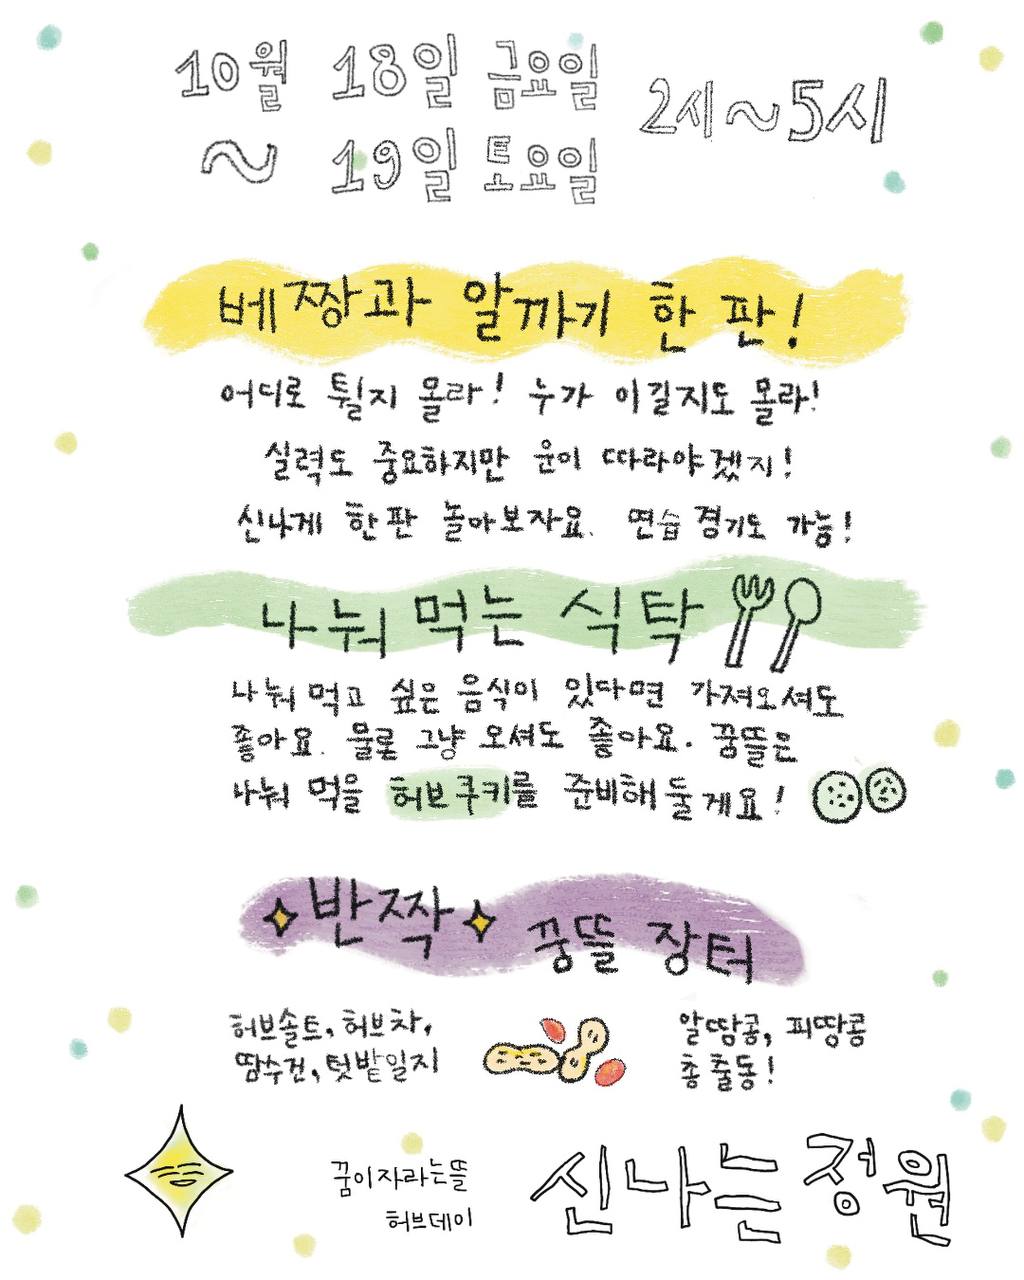 10월 18일 금요일
~ 19일 토요일
2시~5시
베짱과 알까기 한 판!
어디로 튈지 몰라! 누가 이길지도 몰라!
실력도 중요하지만 운이 따라야겠지!
신나게 한판 놀아보자요. 연습 경기도 가능!
나눠 먹는 식탁
나눠 먹고 싶은 음식이 있다면 가져오셔도
좋아요. 물론 그냥 오셔도 좋아요. 꿈뜰은
나눠 먹을 허브쿠키를 준비해 둘게요!
반짝 꿈뜰 장터
허브솔트, 허브차,
땀수건, 텃밭일지
알땅콩, 피땅콩
총출동!
꿈이자라는뜰
허브데이
신나는 정원